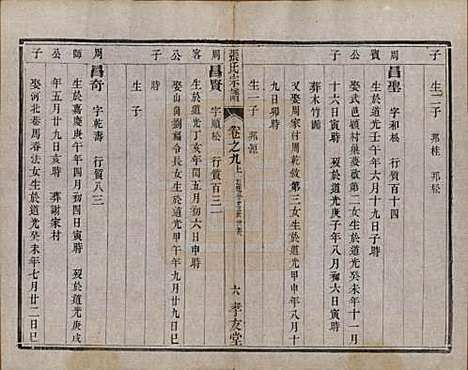 子 生二子 邦桂 邦松
周賓 昌聖 字和松 行質百十四
生於道光壬午年六月十九日子時
娶武邑穎村巢慶敬第二女生於道光癸未年十一月
十六日寅時 歿於道光庚子年八月初六日寅時
葬木竹園
又娶周家村周乾敘第三女生於道光甲申年八月十
九日卯時
子 生一子 邦源
張氏宗譜 卷之九上 六 孝友堂
周客 昌賢 字順松 行質百三一
生於道光丁亥年閏五月初六日申時
公 娶山角劉福令長女生於道光甲午年九月廿九日巳
時
子 生 子
周師 昌奇 字乾壽 行質八三
生於嘉慶庚辰年四月初四日寅時 歿於道光庚戌
公 年五月廿九日亥時 葬謝家村
娶河北巷馬春法女生於道光癸未年七月廿二日巳